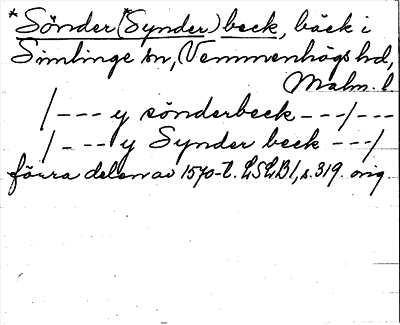 *Sönder(*Synder)beck, bäck i
Simlinge sn, Vemmenhögs hd,
Malm. l
/--- y sönderbeck ---/---
/--- y Synder beck ---/
förra delen av 1570-t. LSLB1, s. 319. orig.